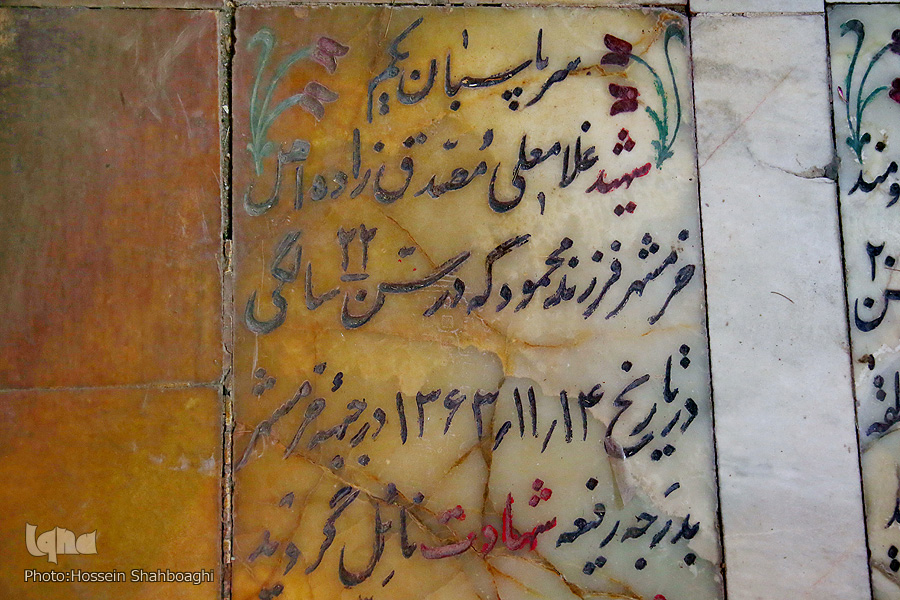 سرپاسبان یکم
شهید غلامعلی مُصَدق زاده اهل
خرمشهر فرزند محمود که در سن ۲۲ سالگی
در تاریخ ۱۳۶۳٫۱۱٫۱۴ در جبههٔ خرمشهر
بدرَجه رفیعه شهادت نائل گردید
ومند
۲۰
iqna
Photo:Hossein Shahboaghi